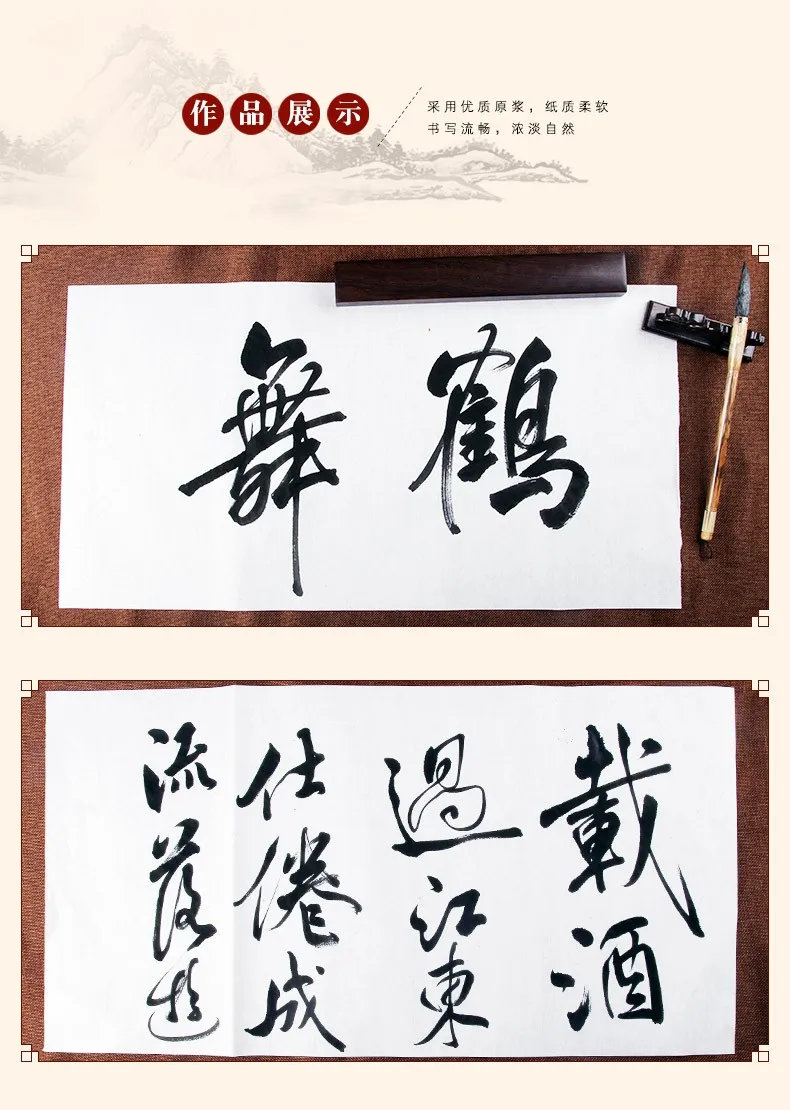 作品展示
采用优质原浆，纸质柔软
书写流畅，浓淡自然
鶴舞
載酒
過江東
仕倦成
流落遊